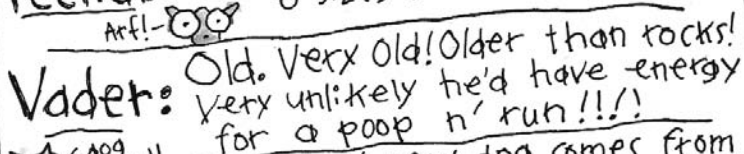 Arf!-
Vader: Old. Very Old! Older than rocks!
Very unlikely he'd have energy
for a poop n' run!!!!
comes from